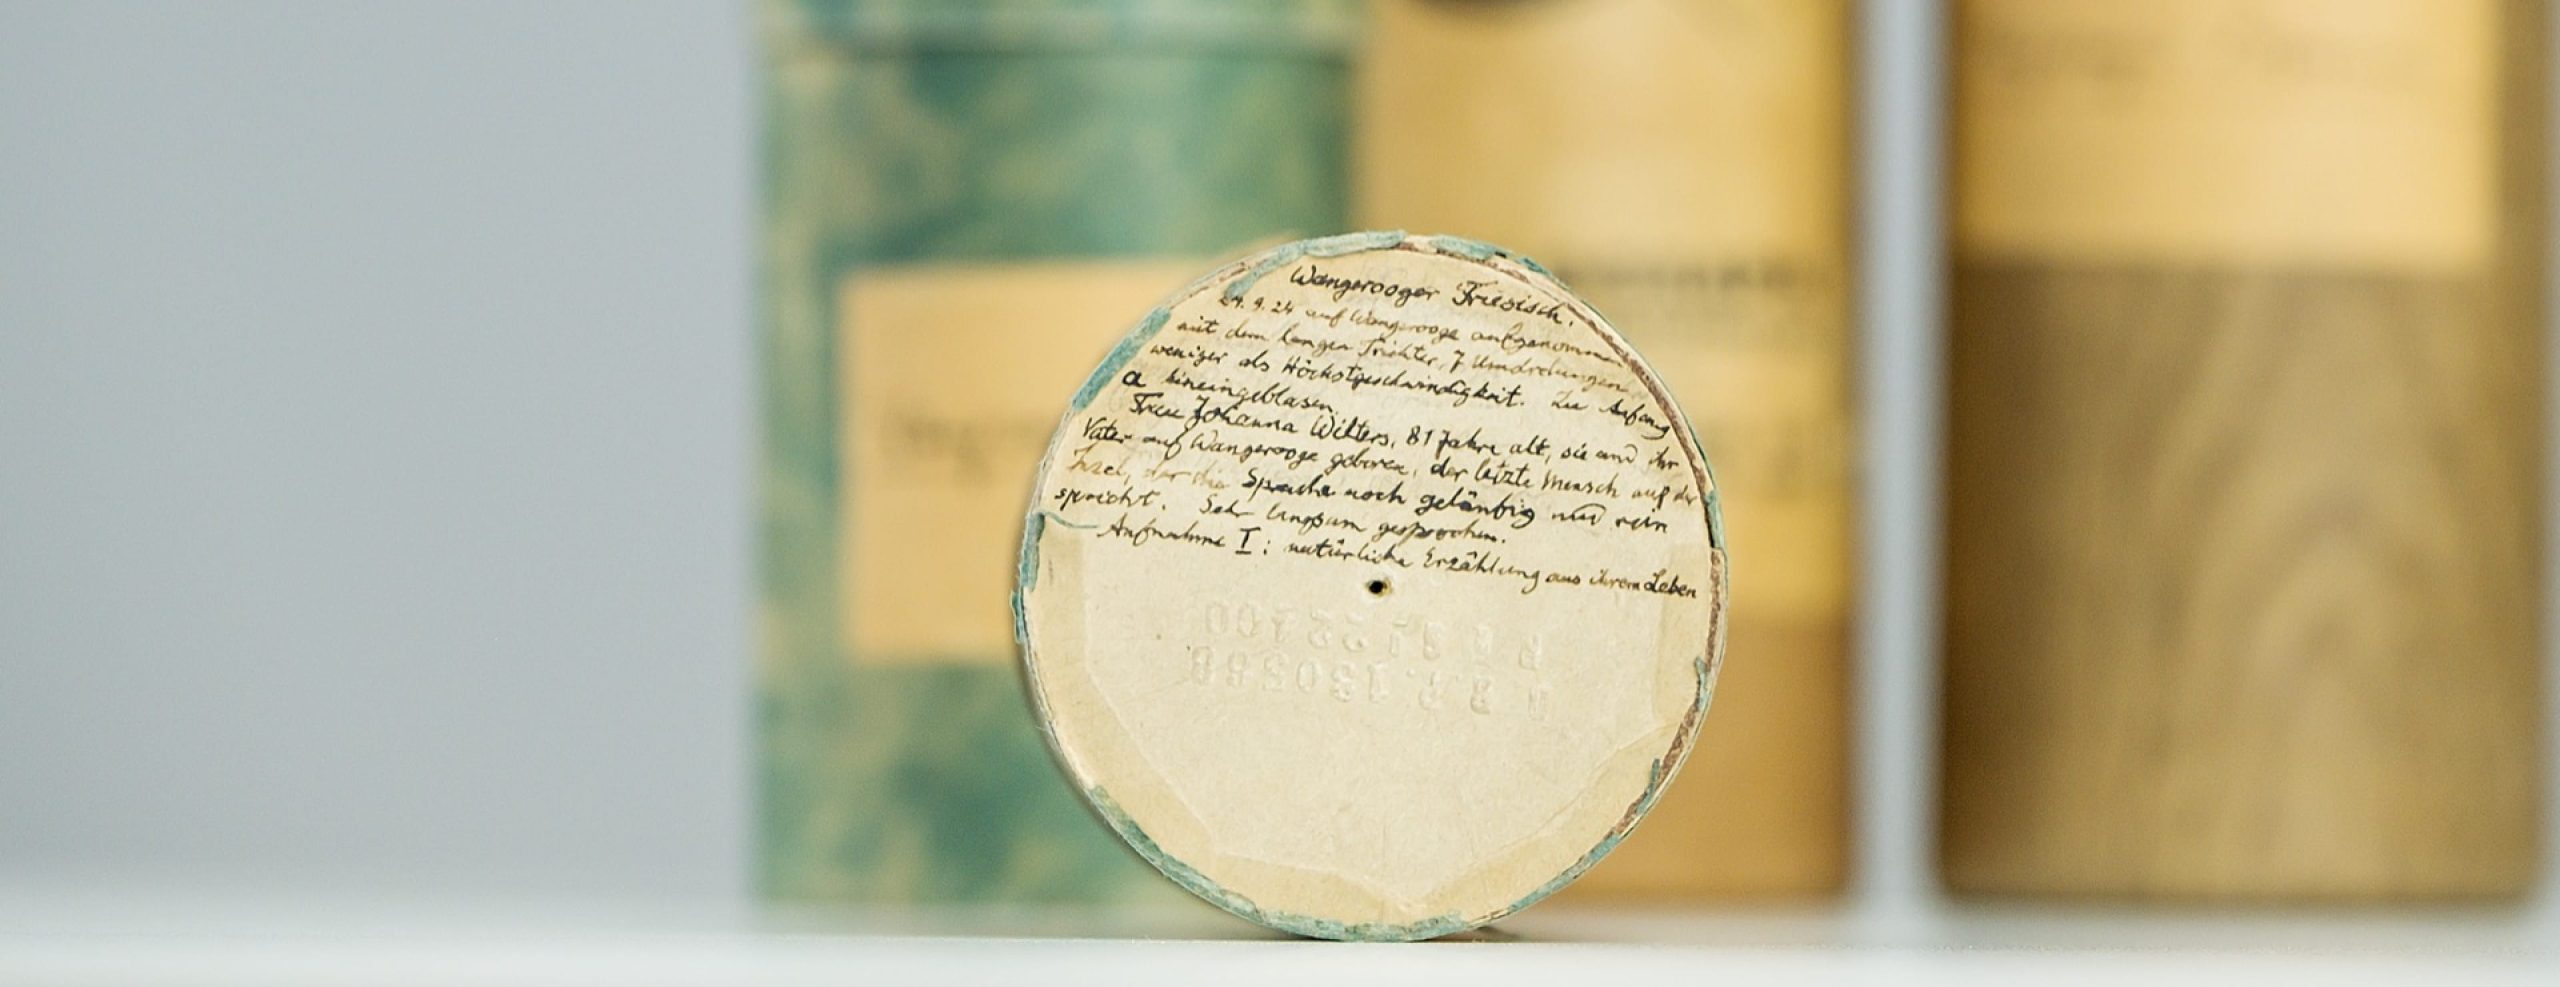 Wangerooger Friesisch.
24. 9. 24 auf Wangerooge aufgenommen
mit dem langen Trichter, 7 Umdrehungen
weniger als Höchstgeschwindigkeit. Zu Anfang
a hineingeblasen.
Frau Johanna Wilters, 81 Jahre alt, sie und ihr
Vater auf Wangerooge geboren, der letzte Mensch auf der
Insel, der die Sprache noch geläufig und rein
spricht. Sehr langsam gesprochen.
Aufnahme I: natürliche Erzählung aus ihrem Leben